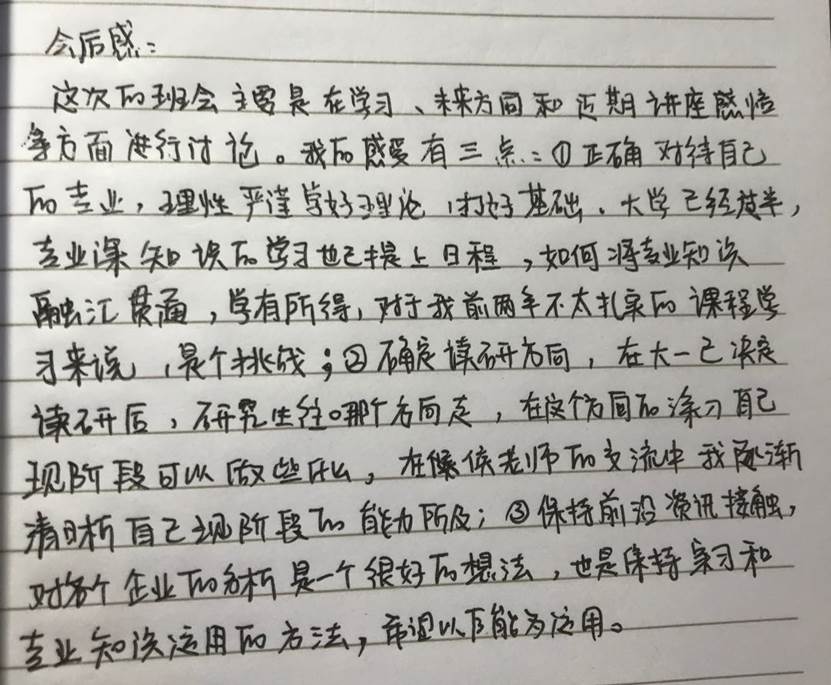 会后感：
这次的班会主要是在学习、未来方向和近期讲座感悟
等方面进行讨论。我的感受有三点：①正确对待自己
的专业，理性严谨学好理论，打好基础。大学已经过半，
专业课知识的学习也已提上日程，如何将专业知识
融汇贯通，学有所得，对于我前两年不太扎实的课程学
习来说，是个挑战；②确定读研方向，在大一已决定
读研后，研究生往哪个方向走，在这个方向的深习自己
现阶段可以做些什么，在像侯老师的交流中我逐渐
清晰自己现阶段的能力所及；③保持前沿资讯接触，
对各个企业的分析是一个很好的想法，也是保持学习和
专业知识运用的方法，希望以后能多运用。